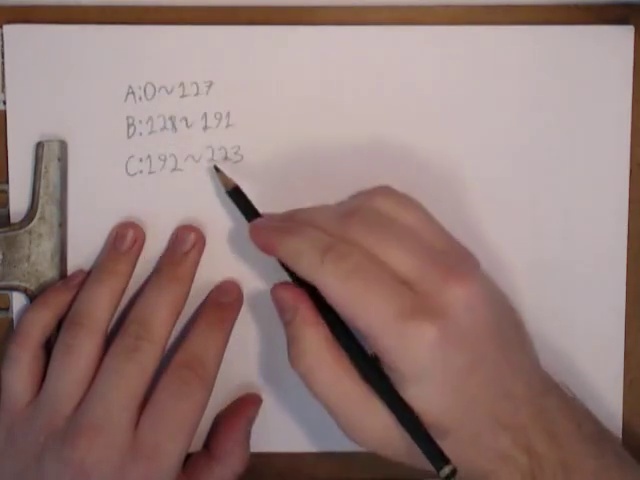 A:0~127
B:128~191
C:192~223